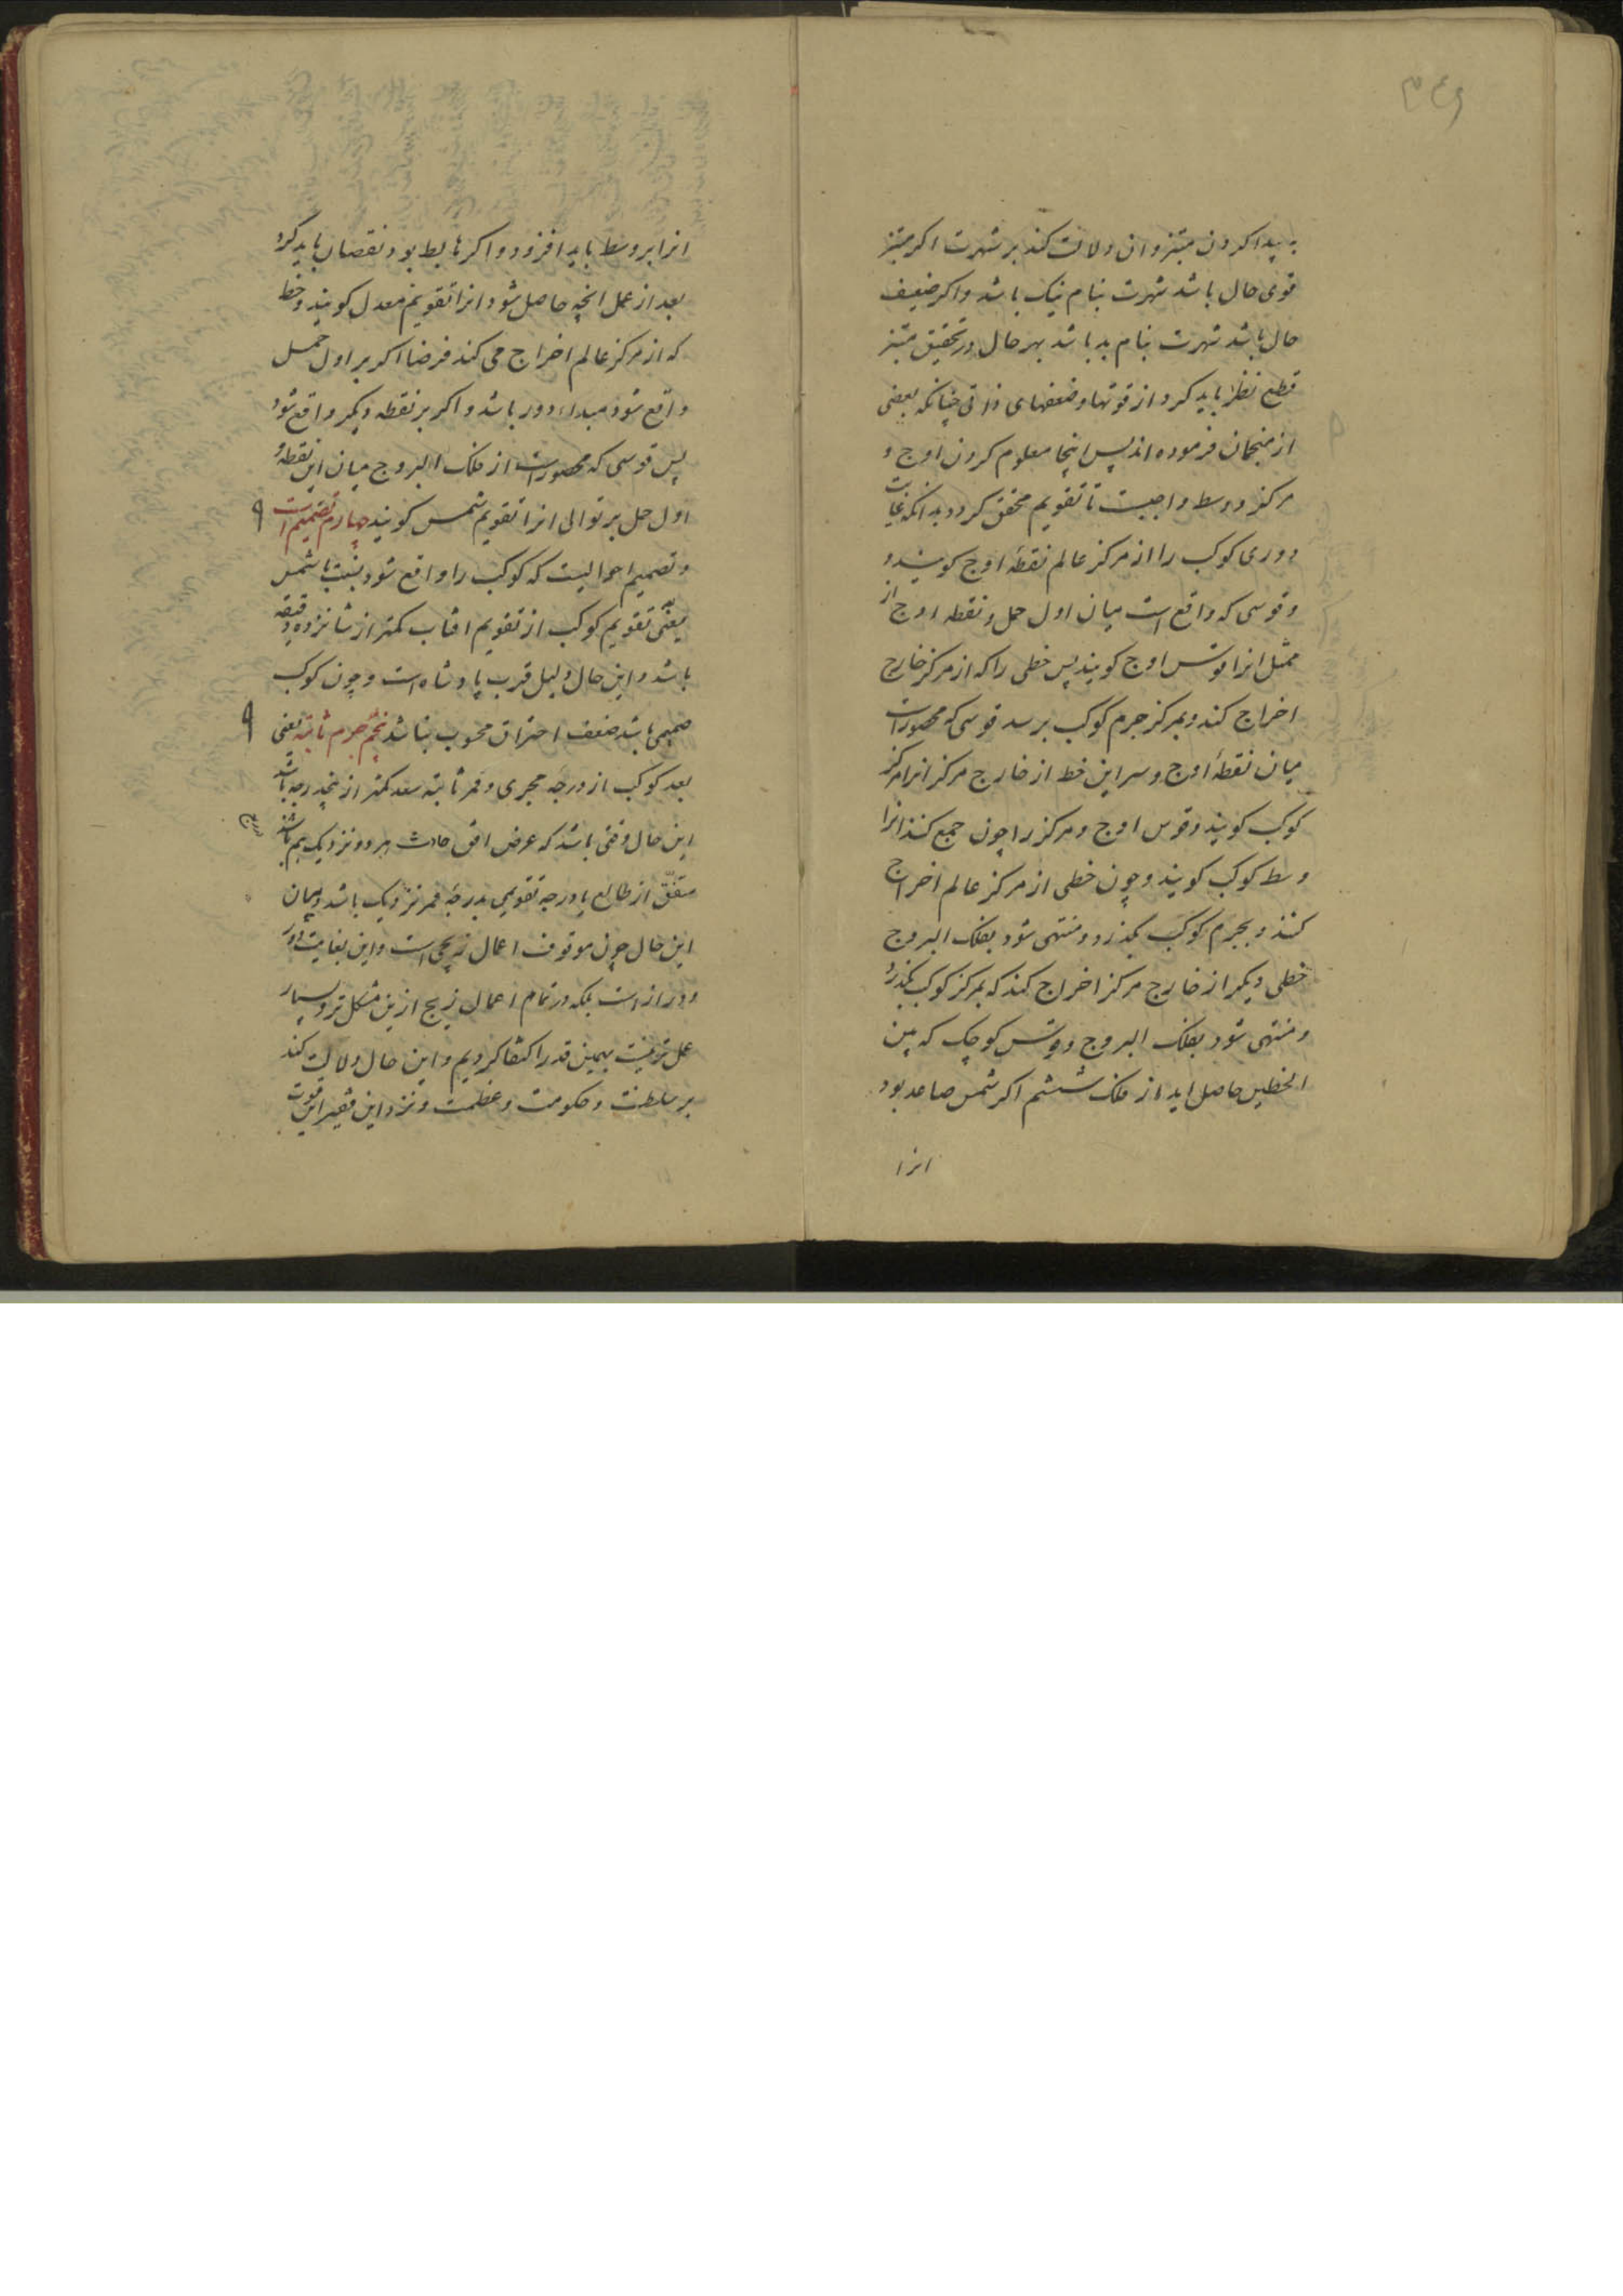 ۳۴۶
به پیدا کردن مبتز و ان دلالت کند بر شهرت اکر مبتز
قوی حال باشد شهرت بنام نیک باشد و اکر ضعیف
حال باشد شهرت بنام بد باشد بهر حال در تحقیق مبتز
قطع نظر باید کرد از قوتها و ضعفهای ذاتی چنانکه بعضی
از منجمان فرموده اند پس اینجا معلوم کردن اوج و
مرکز و وسط واجبست تا تقویم محقق کردد بدانکه غایت
دوری کوکب را از مرکز عالم نقطه اوج کویند و
و قوسی که واقع است میان اول حمل و نقطه اوج از
ممثل انرا قوس اوج کویند پس خطی را که از مرکز خارج
اخراج کند و بمرکز جرم کوکب برسد قوسی که محصور است
میان نقطهٔ اوج و سر این خط از خارج مرکز انرا مرکز
کوکب کویند و قوس اوج و مرکز را چون جمع کنند انرا
وسط کوکب کویند و چون خطی از مرکز عالم اخراج
کنند و بجرم کوکب بکذرد و منتهی شود بفلک البروج
خطی دیکر از خارج مرکز اخراج کند که بمرکز کوکب بکذرد
و منتهی شود بفلک البروج و قوس کوچک که بین
الخطین حاصل اید از فلک ششم اکر شمس صاعد بود
انرا
انرا بر وسط باید افزود و اکر هابط بود نقصان باید کرد
بعد از عمل انچه حاصل شود انرا تقویم معدل کویند و خط
که از مرکز عالم اخراج می کند فرضا اکر بر اول حمل
واقع شود مبداء دور باشد و اکر بر نقطه دیکر واقع شود
پس قوسی که محصور است از فلک البروج میان این نقطه و
اول حمل بر توالی انرا تقویم شمس کویند چهارم تصمیم است
و تصمیم احوالیست که کوکب را واقع شود بنسبت با شمس
یعنی تقویم کوکب از تقویم افتاب کمتر از شانزده دقیقه
باشد و این حال دلیل قرب پادشاه است و چون کوکب
صمیمی باشد ضعف احتراق محسوب نباشد پنجم جرم ثابته یعنی
بعد کوکب از درجه مجری و ممر ثابته سعد کمتر از پنجدرجه باشد
این حال وقتی باشد که عرض افق حادث هر دو نزدیک بهم باشد
متفق از طالع یا درجه تقویمی بدرجهٔ ممر نزدیک باشد و بیان
این حال چون موقوف اعمال زیجی است و این بغایت دور
و دراز است بلکه در تمام اعمال زیج ازین مشکل تر و بسیار
عمل تر نیست بهمین قدر اکتفا کردیم و این حال دلالت کند
بر سلطنت و حکومت و عظمت و نزد این فقیر این قوت